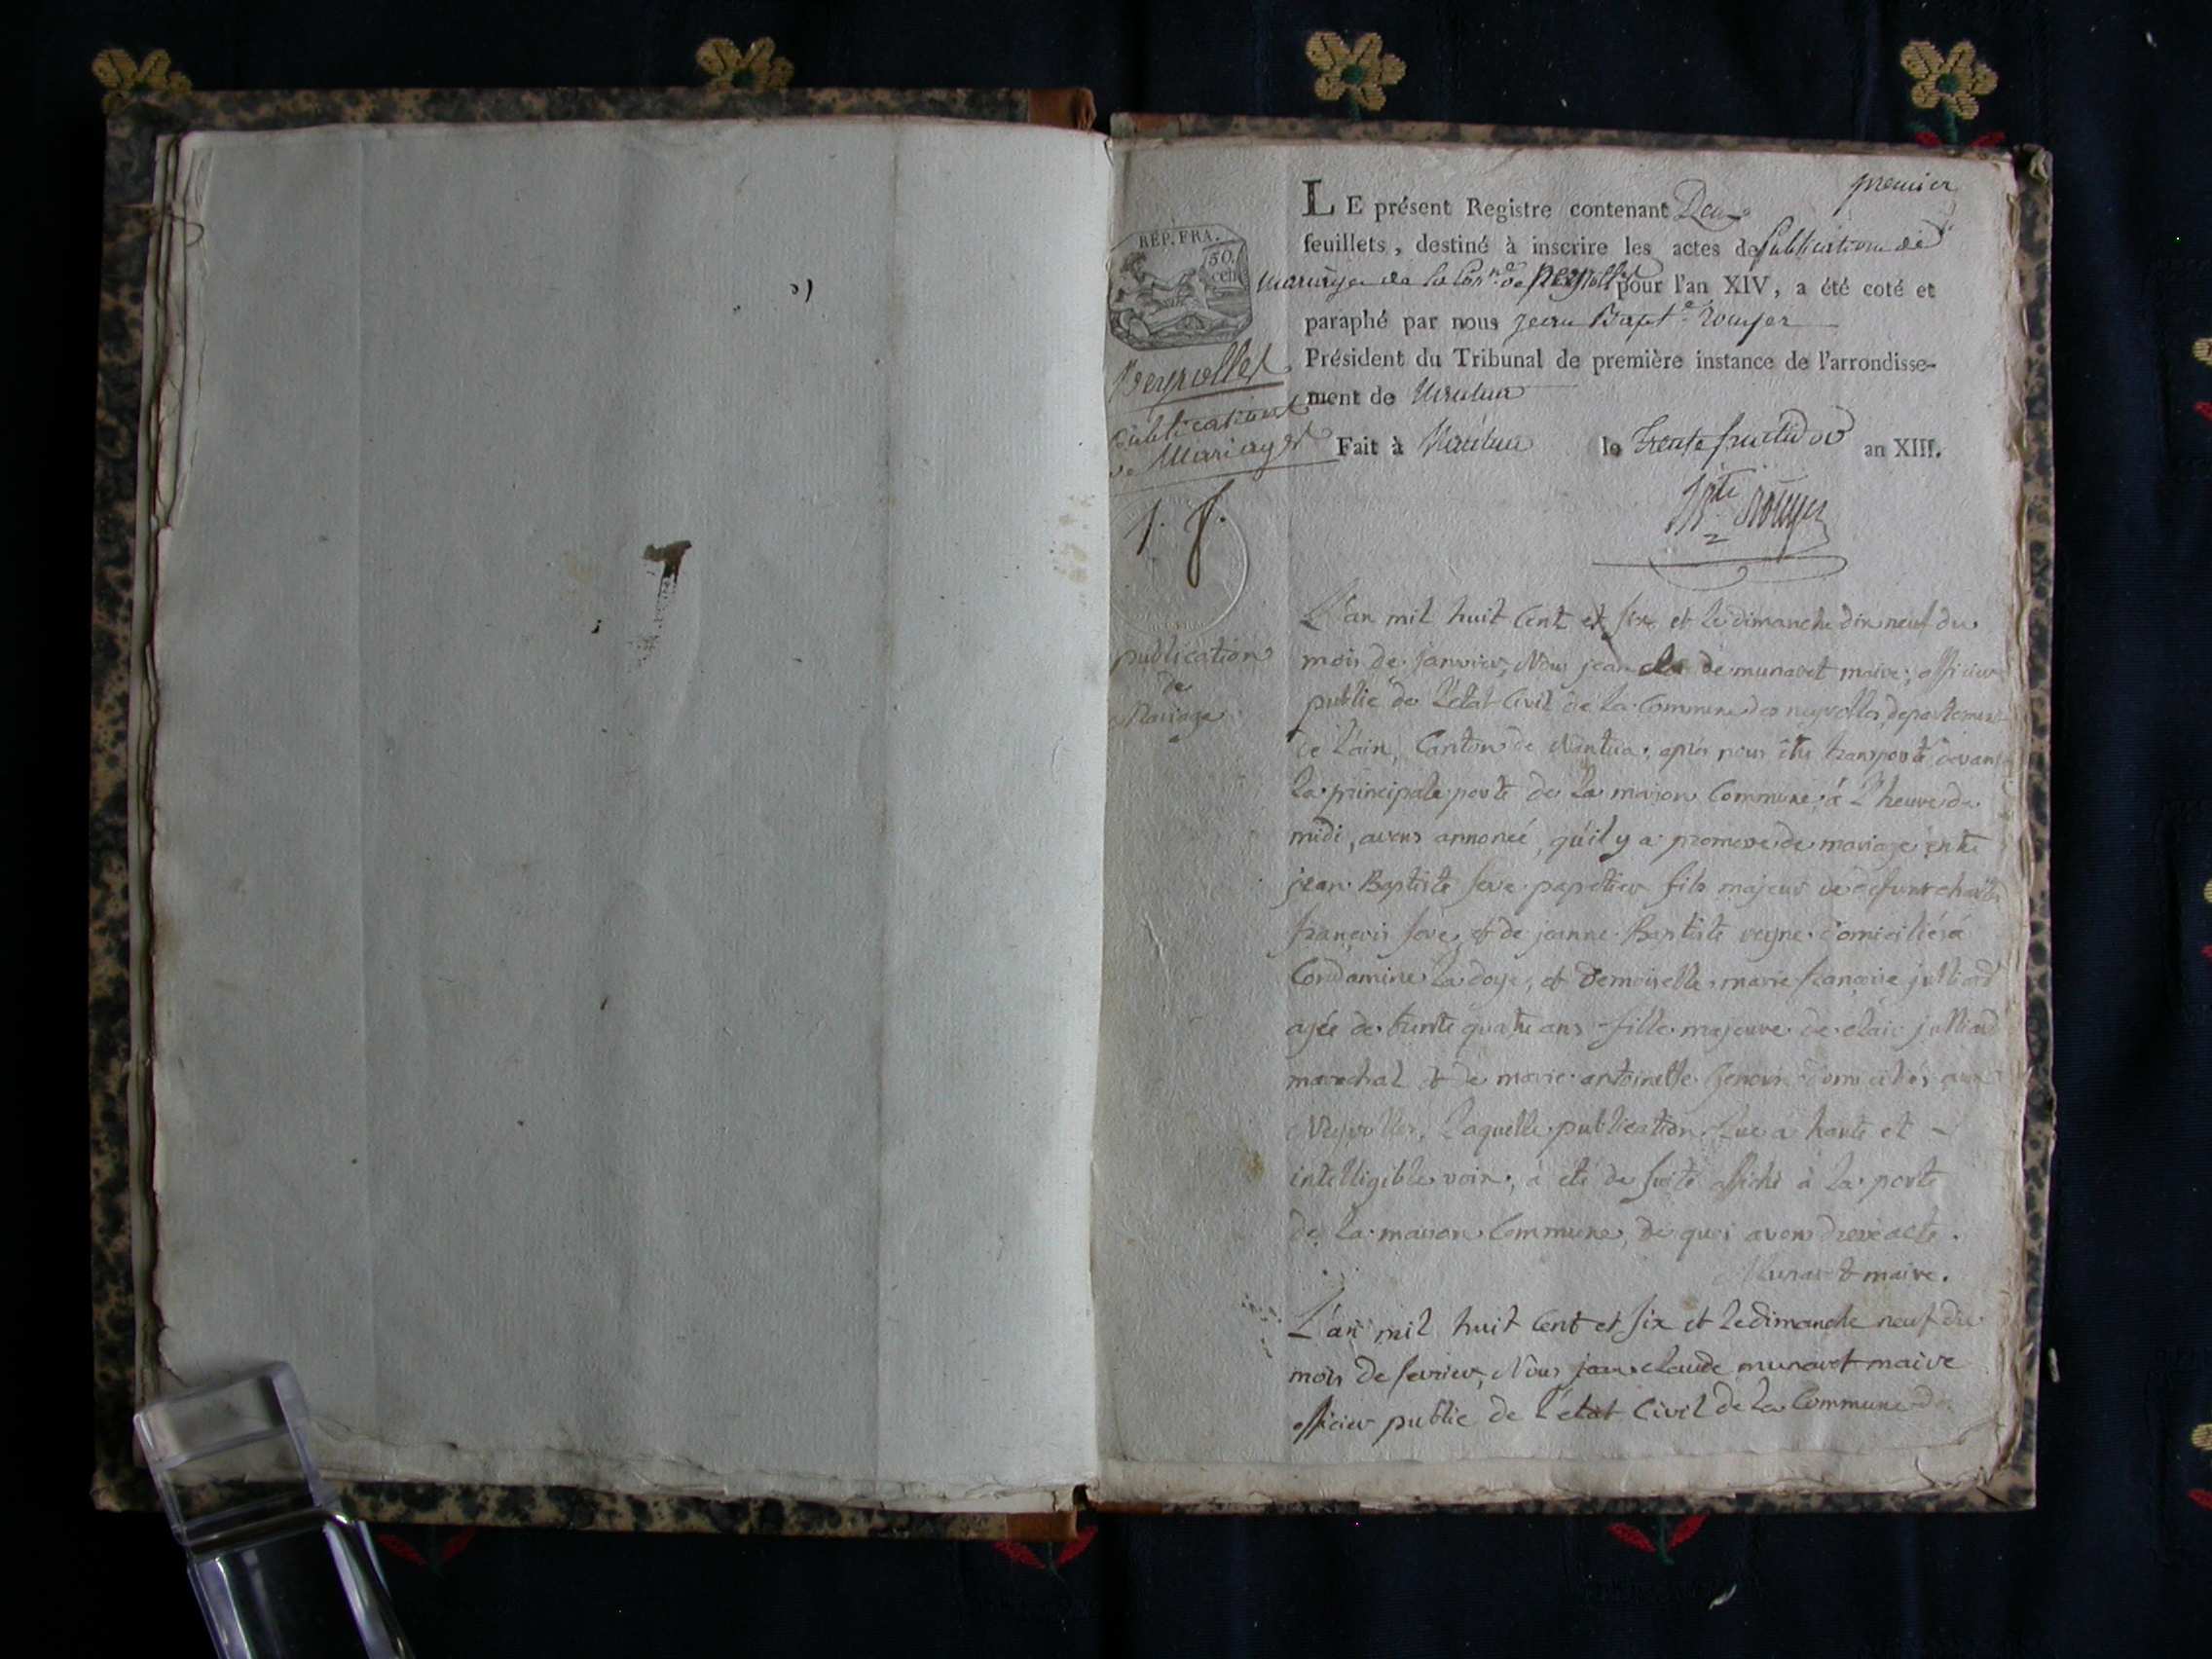 premier
LE présent Registre contenant Deux
feuillets, destiné à inscrire les actes de publication de
mariage de la Con.ne de Neyrolles pour l'an XIV, a été coté et
paraphé par nous jean Bapt.e rouyer
Président du Tribunal de première instance de l'arrondisse-
ment de Nantua
Fait à Nantua le trente fructidor an XIII.
Bte rouyer
REP. FRA.
50.
cen
Neyrolles
publications
de Mariages
1. f.
publication
de
Mariage
L'an mil huit Cent et six et le dimanche dix neuf du
mois de janvier, Nous jean cla de munaret maire, officier
public de L'état Civil de la Commune des neyrolles, departement
de L'ain, Canton de Nantua, après nous être transporté devant
la principale porte de la maison Commune à l'heure de
midi, avons annoncé, qu'il y a promesse de mariage entre
jean Baptiste seve papetier fils majeur de defunt
françois seve, et de jeanne Baptiste veyne domiciliés à
Condamine la doye, et Demoiselle marie françoise julliard
agée de trente quatre ans fille majeure de claude julliard
marechal & de marie antoinette domiciliés aux
Neyrolles, Laquelle publication lue a haute et -
intelligible voix, a été de suite affiché à la porte
de la maison Commune, de quoi avons dressé acte.
Munaret maire.
L'an mil huit Cent et six et le dimanche neuf du
mois de fevrier, Nous jean claude munaret maire
officier public de l'état Civil de la Commune de